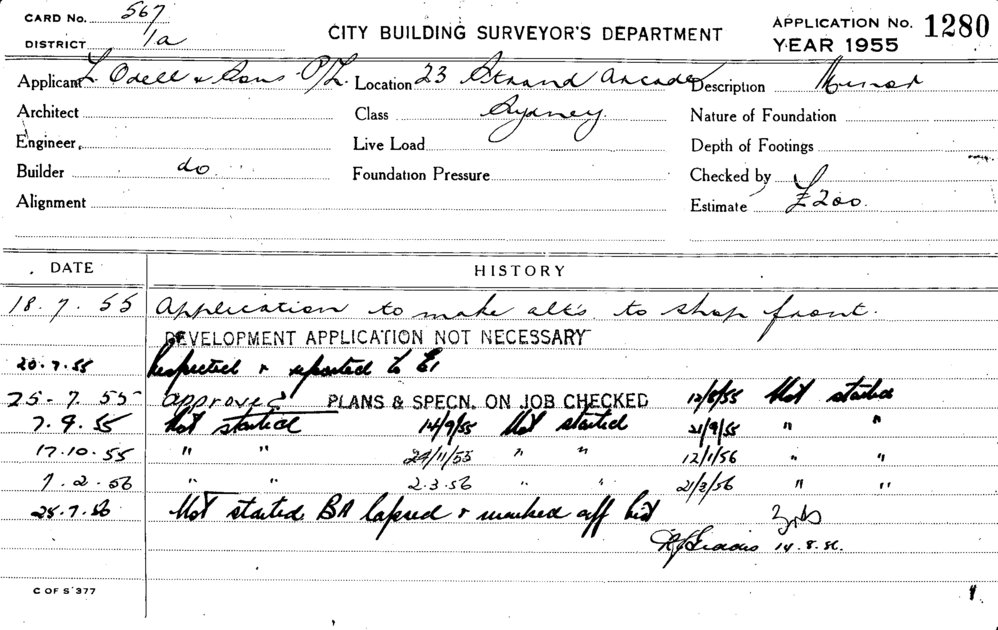 CARD No. 567
DISTRICT 1a
CITY BUILDING SURVEYOR'S DEPARTMENT
APPLICATION No. 1280
YEAR 1955
Applicant L. Odell & Sons P/L. Location 23 Strand Arcade Description Minor
Architect Class Sydney. Nature of Foundation
Engineer Live Load Depth of Footings
Builder do Foundation Pressure Checked by
Alignment Estimate £200.
DATE HISTORY
18.7.55 Application to make alts. to shop front.
DEVELOPMENT APPLICATION NOT NECESSARY
20.7.55 Inspected & reported to
25-7.55 approved PLANS & SPECN. ON JOB CHECKED 12/8/55 Not started
7.9.55 Not started 14/9/55 Not started 21/9/55 " "
17.10.55 " " 24/11/55 " " 12/1/56 " "
7.2.56 " " 2.3.56 " " 21/3/56 " "
25.7.56 Not started BA lapsed & marked off list
14.8.56.
C OF S 377